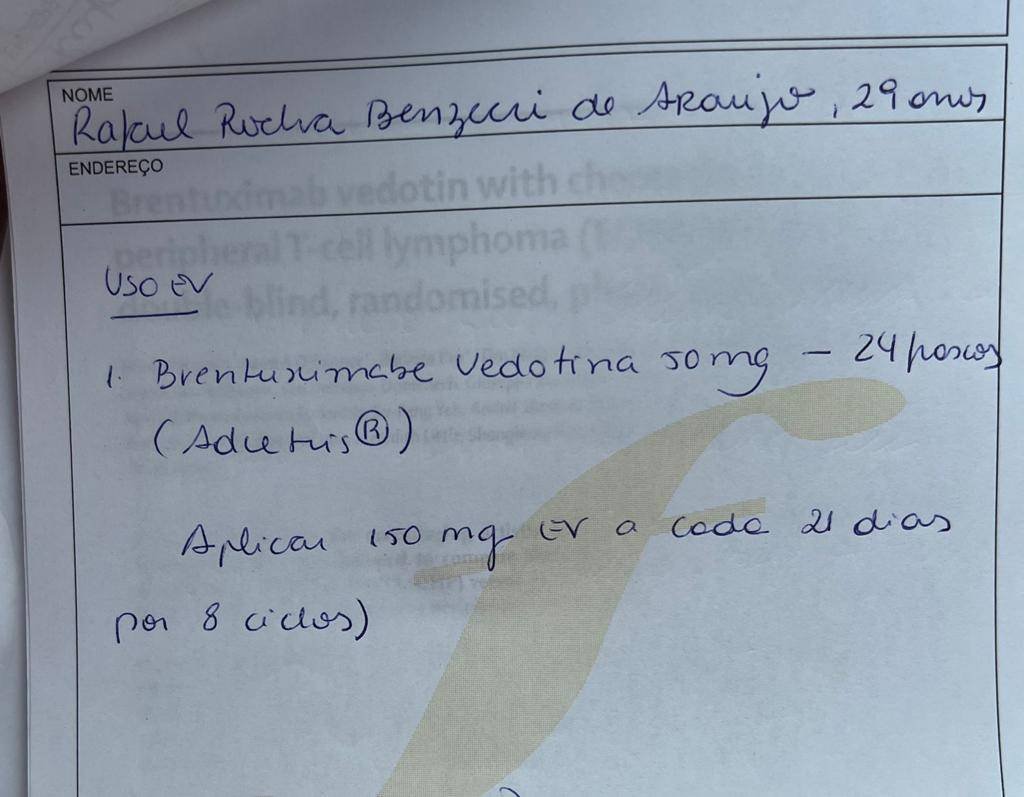 NOME
Rafael Rocha Benzecri de Araujo, 29 anos
ENDEREÇO
Brentuximab vedotin with
peripheral T-cell lymphoma
double-blind, randomised,
USO EV
1. Brentuximabe Vedotina 50mg — 24 frascos
(Adcetris®)
Aplicar 150 mg EV a cada 21 dias
por 8 ciclos)